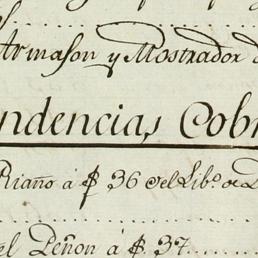 Armason y Mostrador d
ndencias Cobr
Riaño á $ 36 del Lib.o de D
el Peñon á $. 37